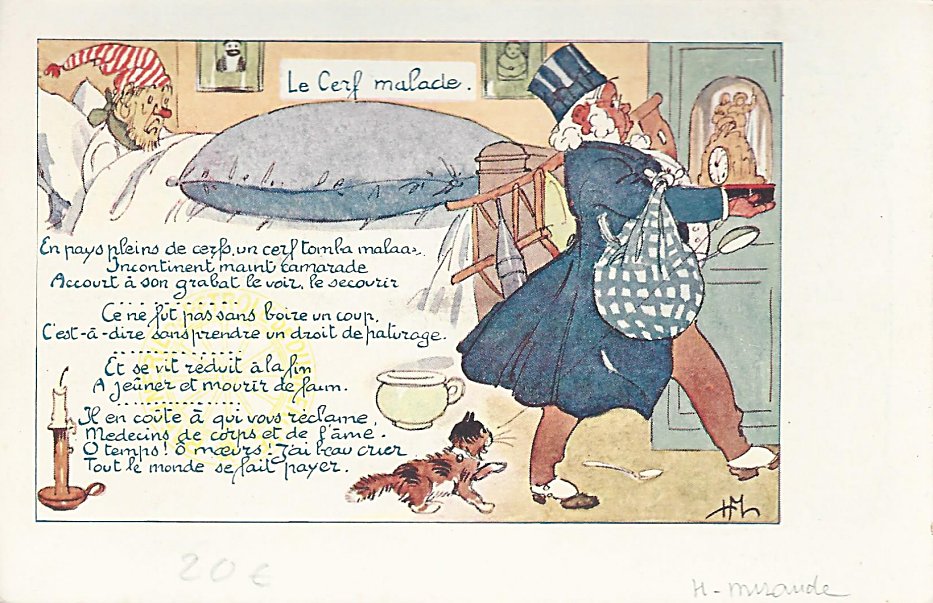 Le Cerf malade.
En pays pleins de cerfs, un cerf tomba
Incontinent maint camarade
Accourt à son grabat le voir, le secourir
..............
Ce ne fut pas sans boire un coup,
C'est-à-dire sans prendre un droit de paturage.
..............
Et se vit réduit à la fin
A jeûner et mourir de faim.
..............
Il en coûte à qui vous réclame,
Medecins de corps et de l'âme.
O temps! O mœurs! J'ai beau crier
Tout le monde se fait payer.
HM
20 €
H - Mirande